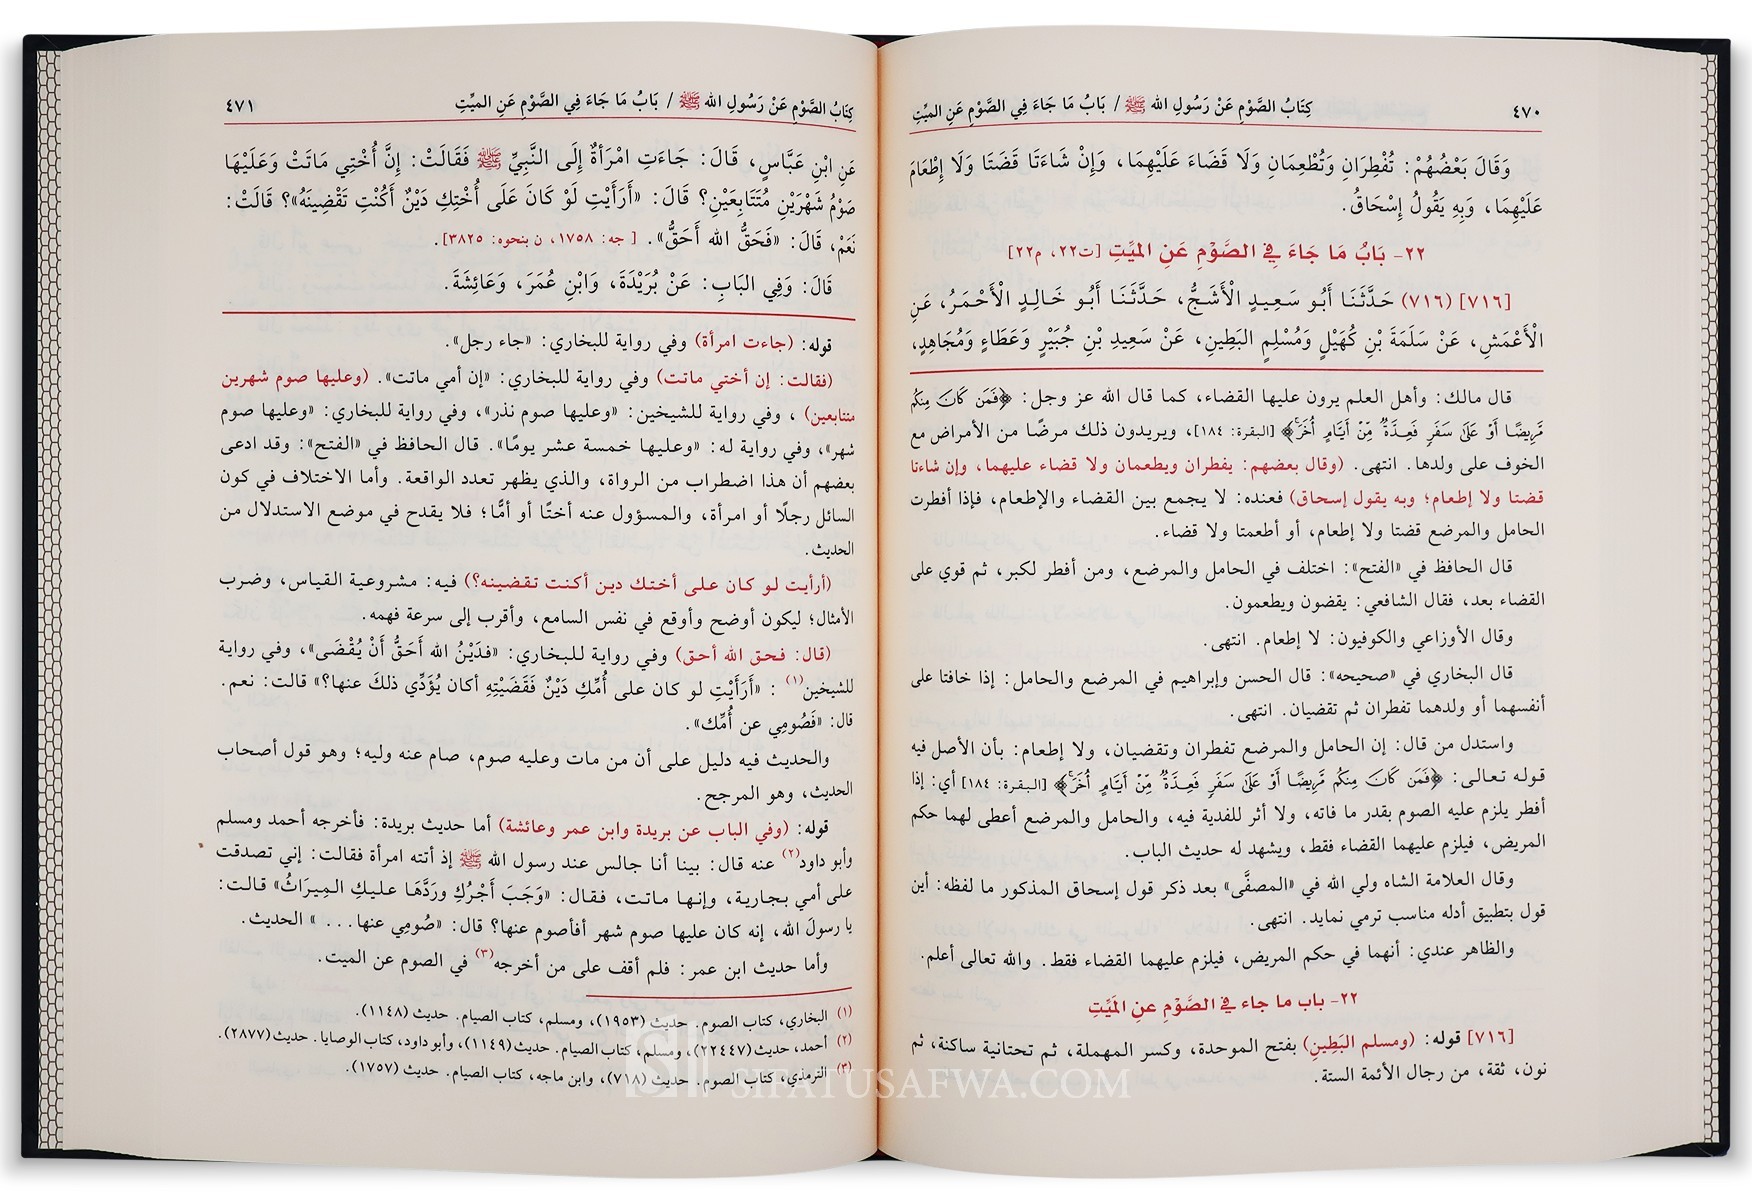 ٤٧٠ كِتَابُ الصَّوْمِ عَنْ رَسُولِ الله ﷺ / بَابُ مَا جَاءَ فِي الصَّوْمِ عَنِ الميِّتِ
وَقَالَ بَعْضُهُمْ: تُفْطِرَانِ وَتُطْعِمَانِ وَلَا قَضَاءَ عَلَيْهِمَا، وَإِنْ شَاءَتَا قَضَتَا وَلَا إِطْعَامَ
عَلَيْهِمَا، وَبِهِ يَقُولُ إِسْحَاقُ.
٢٢- بَابُ مَا جَاءَ فِي الصَّوْمِ عَنِ الميِّتِ [ت٢٢، م٢٢]
[٧١٦] (٧١٦) حَدَّثَنَا أَبُو سَعِيدٍ الْأَشَجُّ، حَدَّثَنَا أَبُو خَالِدٍ الْأَحْمَرُ، عَنِ
الْأَعْمَشِ، عَنْ سَلَمَةَ بْنِ كُهَيْلٍ وَمُسْلِمٍ البَطِينِ، عَنْ سَعِيدِ بْنِ جُبَيْرٍ وَعَطَاءٍ وَمُجَاهِدٍ،
قال مالك: وأهل العلم يرون عليها القضاء، كما قال الله عز وجل: ﴿فَمَن كَانَ مِنكُم
مَّرِيضًا أَوْ عَلَىٰ سَفَرٍ فَعِدَّةٌ مِّنْ أَيَّامٍ أُخَرَ﴾ [البقرة: ١٨٤]، ويريدون ذلك مرضًا من الأمراض مع
الخوف على ولدها. انتهى. (وقال بعضهم: يفطران ويطعمان ولا قضاء عليهما، وإن شاءتا
قضتا ولا إطعام؛ وبه يقول إسحاق) فعنده: لا يجمع بين القضاء والإطعام، فإذا أفطرت
الحامل والمرضع قضتا ولا إطعام، أو أطعمتا ولا قضاء.
قال الحافظ في «الفتح»: اختلف في الحامل والمرضع، ومن أفطر لكبر، ثم قوي على
القضاء بعد، فقال الشافعي: يقضون ويطعمون.
وقال الأوزاعي والكوفيون: لا إطعام. انتهى.
قال البخاري في «صحيحه»: قال الحسن وإبراهيم في المرضع والحامل: إذا خافتا على
أنفسهما أو ولدهما تفطران ثم تقضيان. انتهى.
واستدل من قال: إن الحامل والمرضع تفطران وتقضيان، ولا إطعام: بأن الأصل فيه
قوله تعالى: ﴿فَمَن كَانَ مِنكُم مَّرِيضًا أَوْ عَلَىٰ سَفَرٍ فَعِدَّةٌ مِّنْ أَيَّامٍ أُخَرَ﴾ [البقرة: ١٨٤] أي: إذا
أفطر يلزم عليه الصوم بقدر ما فاته، ولا أثر للفدية فيه، والحامل والمرضع أعطى لهما حكم
المريض، فيلزم عليهما القضاء فقط، ويشهد له حديث الباب.
وقال العلامة الشاه ولي الله في «المصفَّى» بعد ذكر قول إسحاق المذكور ما لفظه: أين
قول بتطبيق أدله مناسب ترمي نمايد. انتهى.
والظاهر عندي: أنهما في حكم المريض، فيلزم عليهما القضاء فقط. والله تعالى أعلم.
٢٢- باب ما جاء في الصَّوْمِ عنِ المَيِّتِ
[٧١٦] قوله: (ومسلم البَطِينِ) بفتح الموحدة، وكسر المهملة، ثم تحتانية ساكنة، ثم
نون، ثقة، من رجال الأئمة الستة.
كِتَابُ الصَّوْمِ عَنْ رَسُولِ الله ﷺ / بَابُ مَا جَاءَ فِي الصَّوْمِ عَنِ الميِّتِ ٤٧١
عَنِ ابْنِ عَبَّاسٍ، قَالَ: جَاءَتِ امْرَأَةٌ إِلَى النَّبِيِّ ﷺ فَقَالَتْ: إِنَّ أُخْتِي مَاتَتْ وَعَلَيْهَا
صَوْمُ شَهْرَيْنِ مُتَتَابِعَيْنِ؟ قَالَ: «أَرَأَيْتِ لَوْ كَانَ عَلَى أُخْتِكِ دَيْنٌ أَكُنْتِ تَقْضِينَهُ»؟ قَالَتْ:
نَعَمْ، قَالَ: «فَحَقُّ الله أَحَقُّ». [جه: ١٧٥٨، ن بنحوه: ٣٨٢٥].
قَالَ: وَفِي البَابِ: عَنْ بُرَيْدَةَ، وَابْنِ عُمَرَ، وَعَائِشَةَ.
قوله: (جاءت امرأة) وفي رواية للبخاري: «جاء رجل».
(فقالت: إن أختي ماتت) وفي رواية للبخاري: «إن أمي ماتت». (وعليها صوم شهرين
متتابعين) ، وفي رواية للشيخين: «وعليها صوم نذر»، وفي رواية للبخاري: «وعليها صوم
شهر»، وفي رواية له: «وعليها خمسة عشر يومًا». قال الحافظ في «الفتح»: وقد ادعى
بعضهم أن هذا اضطراب من الرواة، والذي يظهر تعدد الواقعة. وأما الاختلاف في كون
السائل رجلًا أو امرأة، والمسؤول عنه أختًا أو أمًّا؛ فلا يقدح في موضع الاستدلال من
الحديث.
(أرأيت لو كان على أختك دين أكنت تقضينه؟) فيه: مشروعية القياس، وضرب
الأمثال؛ ليكون أوضح وأوقع في نفس السامع، وأقرب إلى سرعة فهمه.
(قال: فحق الله أحق) وفي رواية للبخاري: «فدَيْنُ الله أَحَقُّ أَنْ يُقْضَى»، وفي رواية
للشيخين(١) : «أَرَأَيْتِ لو كان على أُمِّكِ دَيْنٌ فَقَضَيْتِهِ أكان يُؤَدِّي ذلكَ عنها؟» قالت: نعم.
قال: «فَصُومِي عن أُمِّك».
والحديث فيه دليل على أن من مات وعليه صوم، صام عنه وليه؛ وهو قول أصحاب
الحديث، وهو المرجح.
قوله: (وفي الباب عن بريدة وابن عمر وعائشة) أما حديث بريدة: فأخرجه أحمد ومسلم
وأبو داود(٢) عنه قال: بينا أنا جالس عند رسول الله ﷺ إذ أتته امرأة فقالت: إني تصدقت
على أمي بجارية، وإنها ماتت، فقال: «وَجَبَ أَجْرُكِ ورَدَّهَا عليكِ المِيرَاثُ» قالت:
يا رسولَ الله، إنه كان عليها صوم شهر أفأصوم عنها؟ قال: «صُومِي عنها...» الحديث.
وأما حديث ابن عمر: فلم أقف على من أخرجه(٣) في الصوم عن الميت.
(١) البخاري، كتاب الصوم. حديث (١٩٥٣)، ومسلم، كتاب الصيام. حديث (١١٤٨).
(٢) أحمد، حديث (٢٢٤٤٧)، ومسلم، كتاب الصيام. حديث (١١٤٩)، وأبو داود، كتاب الوصايا. حديث (٢٨٧٧).
(٣) الترمذي، كتاب الصوم. حديث (٧١٨)، وابن ماجه، كتاب الصيام. حديث (١٧٥٧).
SIFATUSAFWA.COM